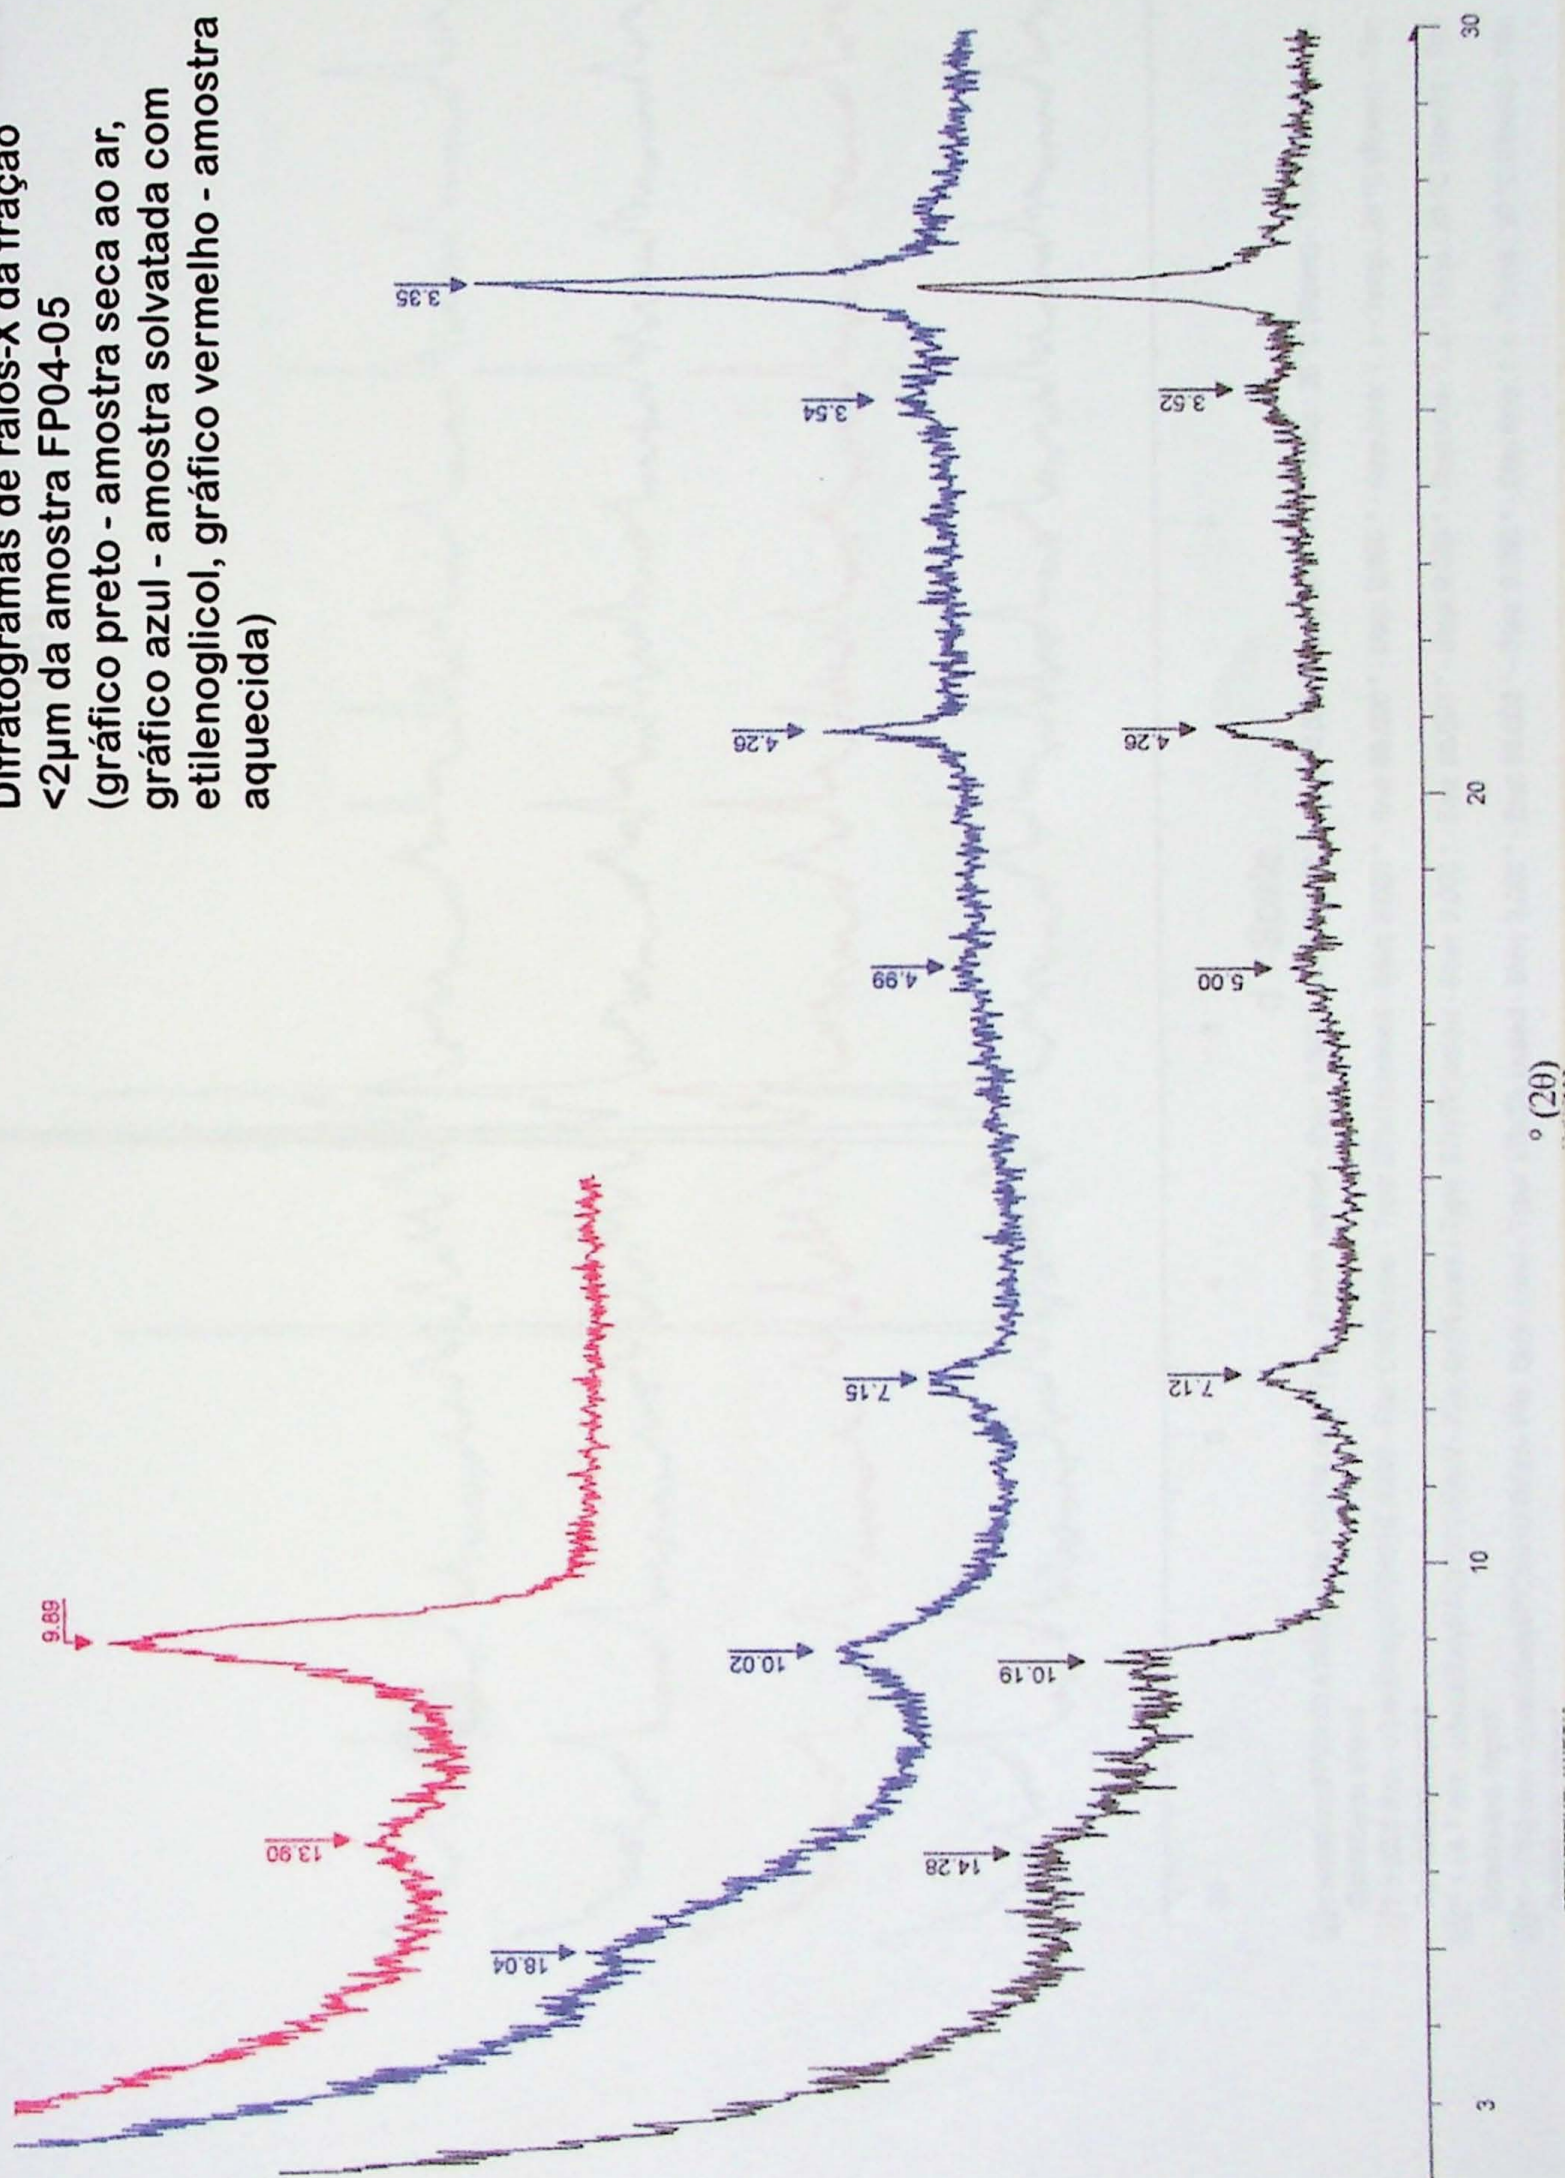 Difratogramas de raios-X da fração
<2µm da amostra FP04-05
(gráfico preto - amostra seca ao ar,
gráfico azul - amostra solvatada com
etilenoglicol, gráfico vermelho - amostra
aquecida)
9.89
13.90
18.04
10.02
7.15
4.99
4.26
3.54
3.35
14.28
10.19
7.12
5.00
4.26
3.52
3
10
20
30
° (2θ)